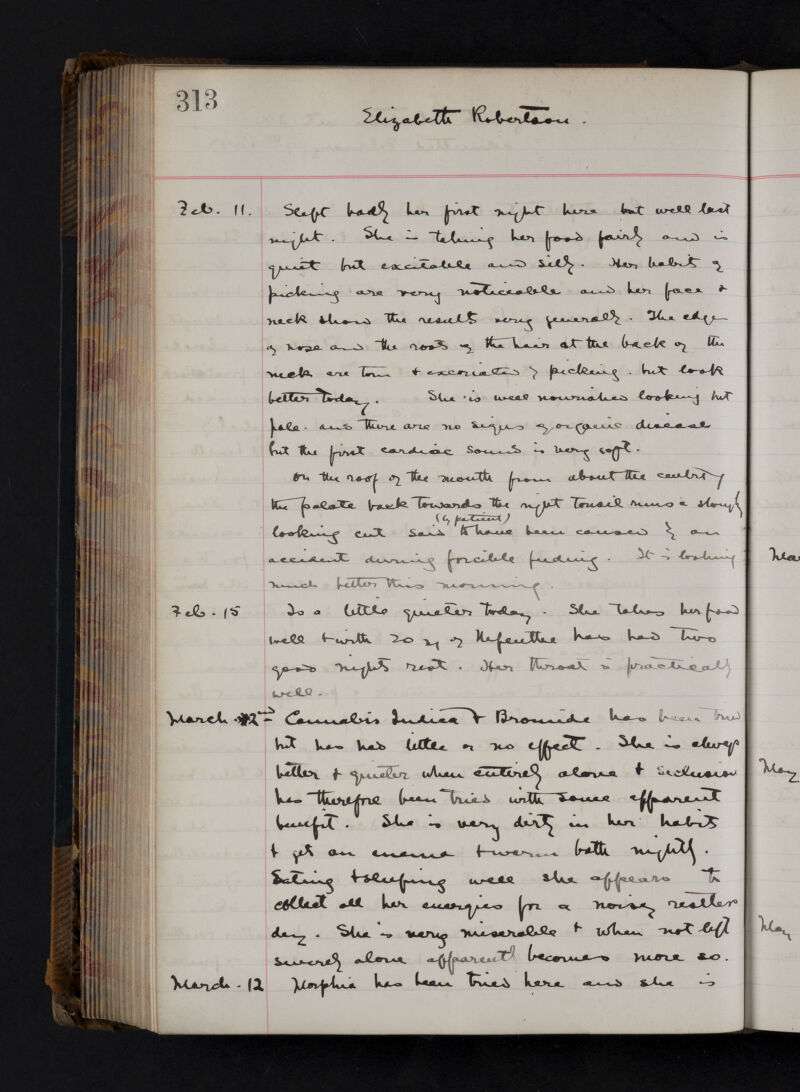 313
Elizabeth Robertson.
Feb. 11. Slept badly her first night here but well last
night. She is taking her food fairly and is
quiet but excitable and silly. Her habits of
picking are very noticeable and her face &
neck show the results very generally. The edge
of nose and the roots of the hair at the back of the
neck are torn & excoriated by picking. but look
better today. She is well nourished looking but
pale. and there are no signs of organic disease
but the first cardiac sound is very soft.
On the roof of the mouth from about the centre of
the palate back towards the right tonsil runs a sloughy
looking cut said (by patient) to have been caused by an
accident during forcible feeding. It is looking
much better this morning.
Feb. 15 Is a little quieter today. She takes her food
well & with 20 of has had two
good nights rest. Her throat is practically
well.
March 2nd Cannabis Indica & Bromide has been tried
but has had little or no effect. She is always
better & quieter when entirely alone & seclusion
has therefore been tried with some apparent
benefit. She is very dirty in her habits
& gets an enema & warm bath nightly.
Eating & sleeping well she appears to
collect all her energies for a noisy restless
day. She is very miserable & when not left
severely alone apparently becomes more so.
March. 12 Morphia has been tried here and she is
Ma
May
May